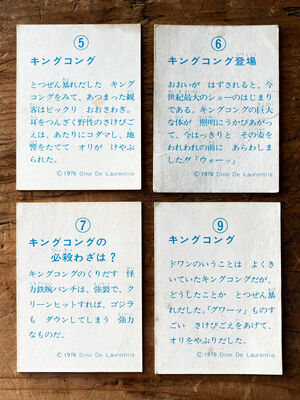 ⑤
キングコング
とつぜん暴れだした　キング
コングをみて、あつまった観
客はビックリ　おおさわぎ。
耳をつんざく野性のさけびご
えは、あたりにコダマし、地
響をたてて　オリが　やぶ
られた。
©1976 Dino De Laurentiis
⑥
キングコング登場
おおいが　はずされると、今
世紀最大のショーのはじまり
である。キングコングの巨大
な体が　照明にうかびあがっ
て、今はっきりと　その姿を
われわれの前に　あらわしま
した!!「ウォーッ」
©1976 Dino De Laurentiis
⑦
キングコングの
必殺わざは？
キングコングのくりだす　怪
力鉄腕パンチは、強裂で、ク
リーンヒットすれば、ゴジラ
も　ダウンしてしまう　強力
なものだ。
©1976 Dino De Laurentiis
⑨
キングコング
ドワンのいうことは　よくき
いていたキングコングだが、
どうしたことか　とつぜん暴
れだした。「グワーッ」ものす
ごい　さけびごえをあげて、
オリをやぶりだした。
©1976 Dino De Laurentiis